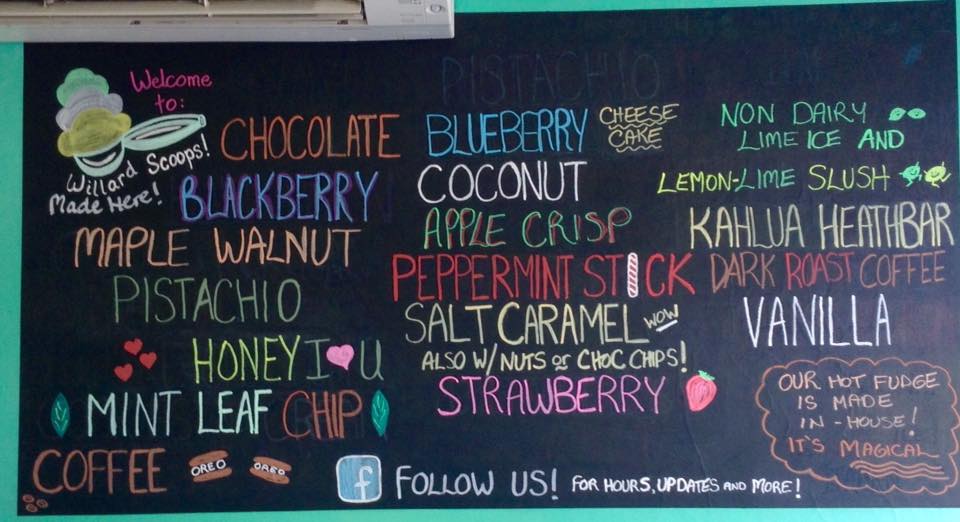 Welcome
to:
Willard Scoops!
Made Here!
CHOCOLATE
BLACKBERRY
MAPLE WALNUT
PISTACHIO
HONEY I U
MINT LEAF CHIP
COFFEE OREO OREO
PISTACHIO
BLUEBERRY CHEESE
CAKE
COCONUT
APPLE CRISP
PEPPERMINT STICK
SALT CARAMEL WOW
ALSO W/ NUTS or CHOC CHIPS!
STRAWBERRY
NON DAIRY
LIME ICE AND
LEMON-LIME SLUSH
KAHLUA HEATHBAR
DARK ROAST COFFEE
VANILLA
OUR HOT FUDGE
IS MADE
IN-HOUSE!
IT'S MAGICAL
f FOLLOW US! FOR HOURS, UPDATES AND MORE!